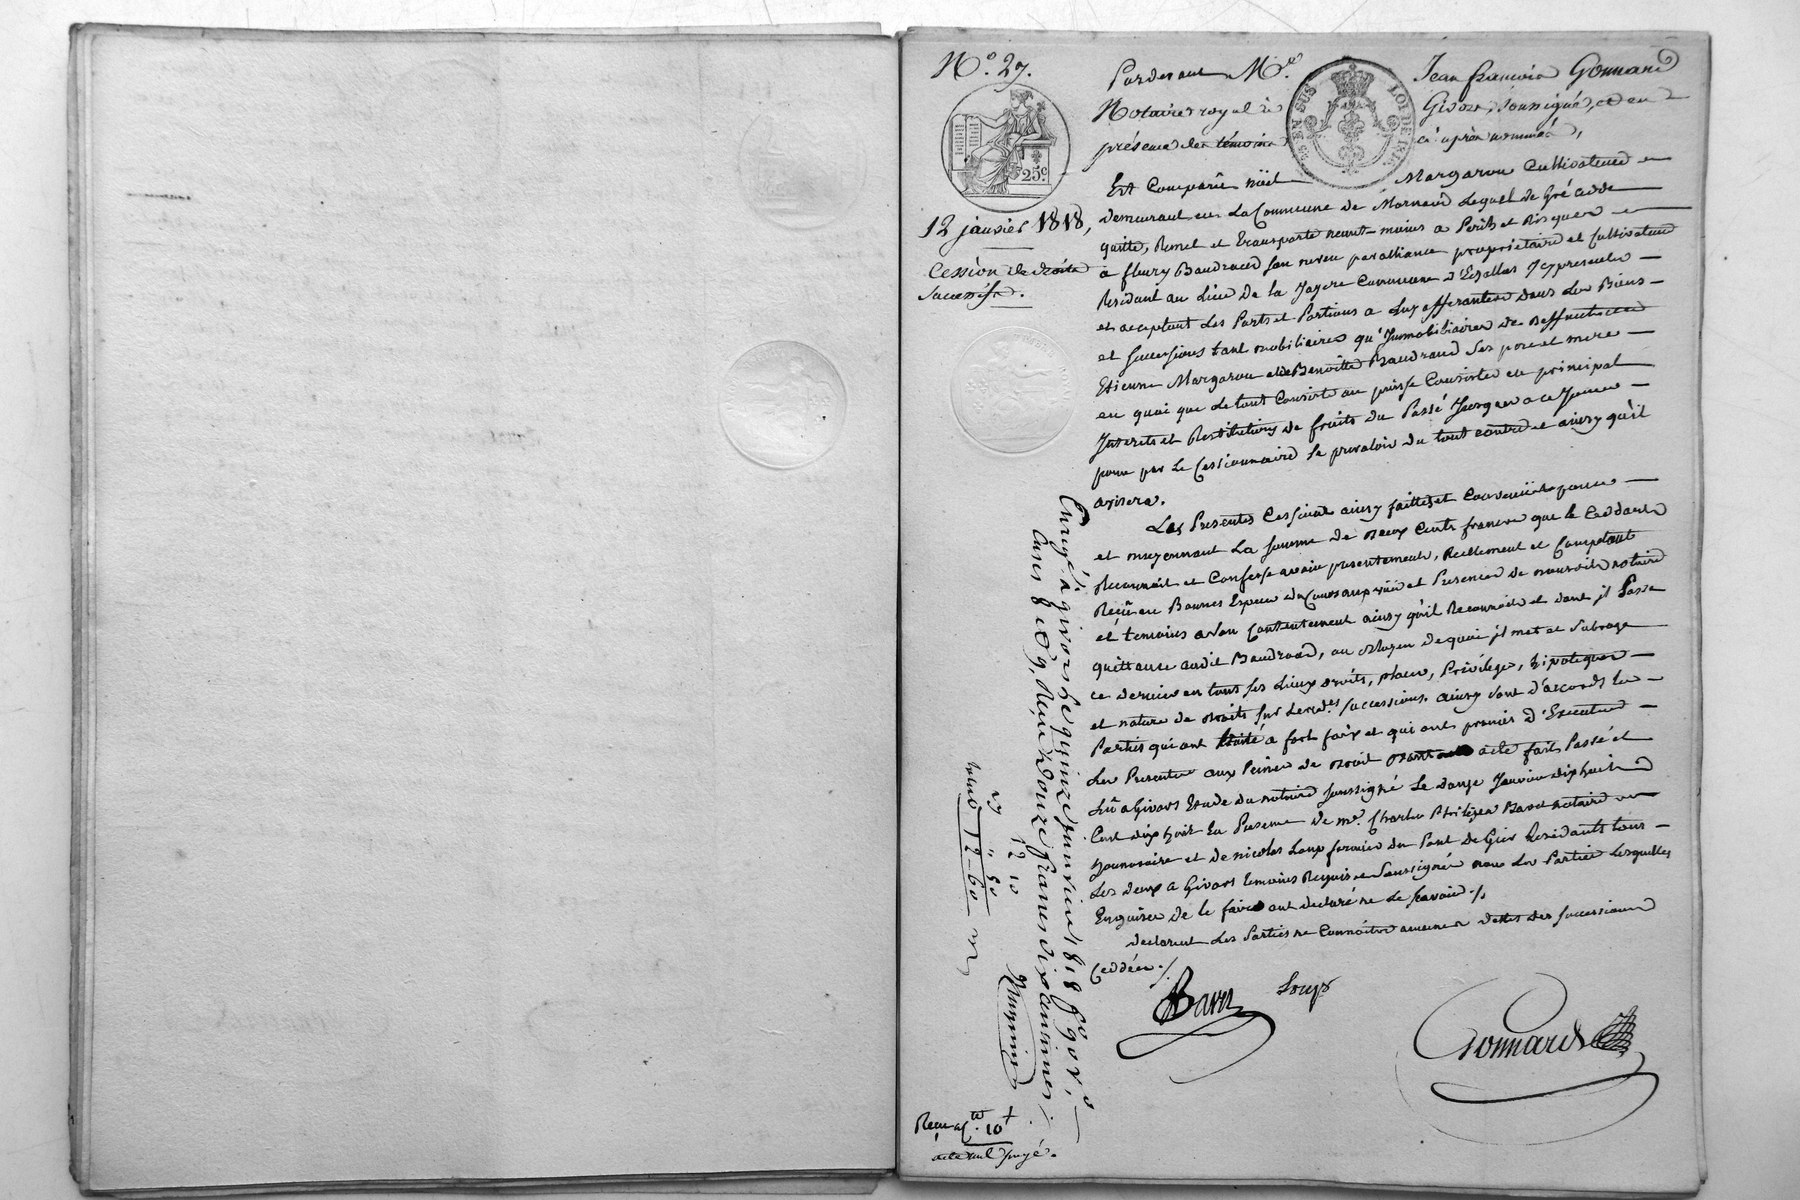 N.º 27.
25 c.
12 janvier 1818,
Cession de droits
successifs.
Pardevant M.e Jean françois Gonnard
Notaire royal à Givors, soussigné, et en
présence des témoins ci après nommés,
EN SUS LOI DE 1816
Est Comparû Margaron Cultivateur
demeurant en La Commune de Mornand Lequel de Gré cedde
quitte, Remet et transporte neant-moins a Perils et Risques
a fleury Baudrand son neveu par alliance propriétaire et Cultivateur
Residant au Lieu de la Commune d'Echallas Icy present
et acceptant Les Parts et Portions a Luy afferantes dans Les Biens
et successions tant mobiliaires qu'Immobiliaires de deffunts
Etienne Margaron et de Benoitte Baudrand Ses pere et mere
en quoi que le tout Consiste ou puisse Consister en principal
Interets et Restitutions de fruits du Passé Jusques a ce Jour
pour par Le Cessionnaire se prevaloir du tout contre et ainsy qu'il
avisera.
Les Presentes Cessions ainsy faittes et Convenües pour
et moyennant La somme de deux Cents francs que le Ceddant
Reconnait et Confesse avoir presentement, Reellement et Comptant
Reçü en Bonnes Especes du Cours aux vüe et Presence de nousdit notaire
et temoins a son Contentement ainsy qu'il Reconnait et dont il Passe
quittance audit Baudrand, au Moyen de quoi il met et Subroge
ce dernier en tous ses Lieux droits, place, Privilege, hipoteques
et nature de droits sur Lesd.es successions. ainsy sont d'accords les
Parties qui ont traité a fort faix et qui ont promis d'Executer
Les Presentes aux Peines de droit acte fait Passé et
Lû a Givors Etude du notaire soussigné Le douze Janvier dix huit
Cent dix huit En Presence de m.e Charles Bavet notaire
honnoraire et de nicolas Loup fermier du Pont de Gier Residants tous
Les deux a Givors temoins Requis et Soussignés non les Parties Lesquelles
Enquises de le faire ont declaré ne le scavoir ./.
declarent Les Parties ne Connoitre aucunes dettes des successions
Ceddées ./.
Bavet Loup
Gonnard
Enreg.é à givors le quinze janvier 1818 f.o 90 v.o,
cases 8 et 9, Reçu douze francs dix centimes ./.
12 10
" 50
12-60
Reçu 10
acte seul payé.